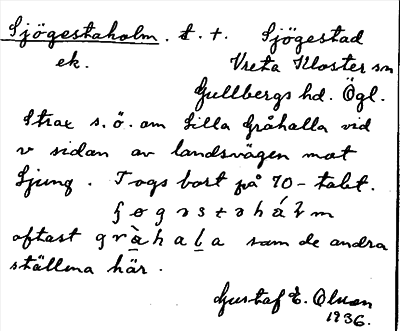 Sjögestaholm. t. +. Sjögestad
ek. Vreta Kloster sn
Gullbergs hd. Ögl.
Strax s.ö. om Lilla Gråhalla vid
v sidan av landsvägen mot
Ljung. Togs bort på 70-talet.
oftast som de andra
ställena här.
Gustaf E. Olson
1936.